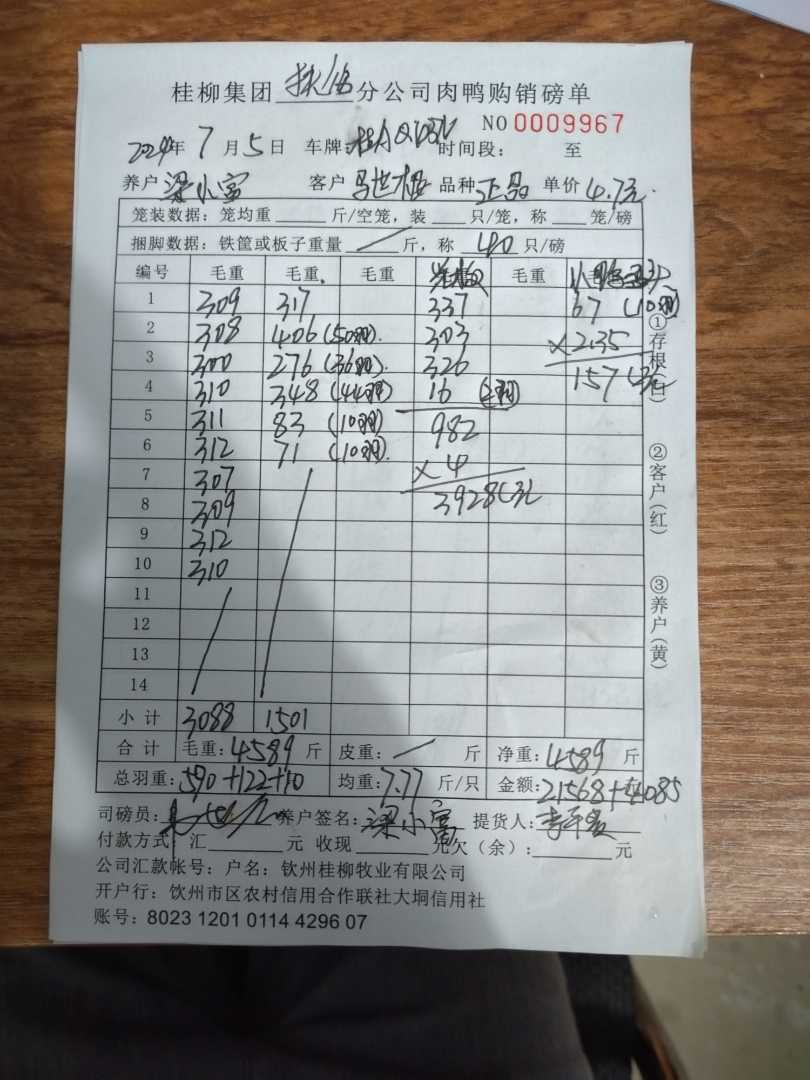 桂柳集团 扶绥 分公司肉鸭购销磅单
NO 0009967
2024年 7月5日 车牌: 时间段: 至
养户 梁小富 客户 马世 品种 正品 单价 4.7元.
笼装数据: 笼均重 斤/空笼, 装 只/笼, 称 笼/磅
捆脚数据: 铁筐或板子重量 / 斤, 称 40 只/磅
编号 毛重 毛重. 毛重 毛重
1 309 317 337 67 (10羽)
2 308 406 (50羽). 303 ×2.35
3 300 276 (36羽). 326 157元
4 310 348 (44羽) 16 (2羽)
5 311 83 (10羽) 982
6 312 71 (10羽). ×4
7 307 3928元
8 309
9 312
10 310
11
12
13
14
小计 3088 1501
合计 毛重: 4589 斤 皮重: / 斤 净重: 4589 斤
总羽重: 590+122+10 均重: 7.77 斤/只 金额: 21568+4085
司磅员: 养户签名: 梁小富 提货人: 李
付款方式: 汇 元 收现 元欠(余): 元
公司汇款帐号: 户名: 钦州桂柳牧业有限公司
开户行: 钦州市区农村信用合作联社大垌信用社
账号: 8023 1201 0114 4296 07
①存根(白)
②客户(红)
③养户(黄)